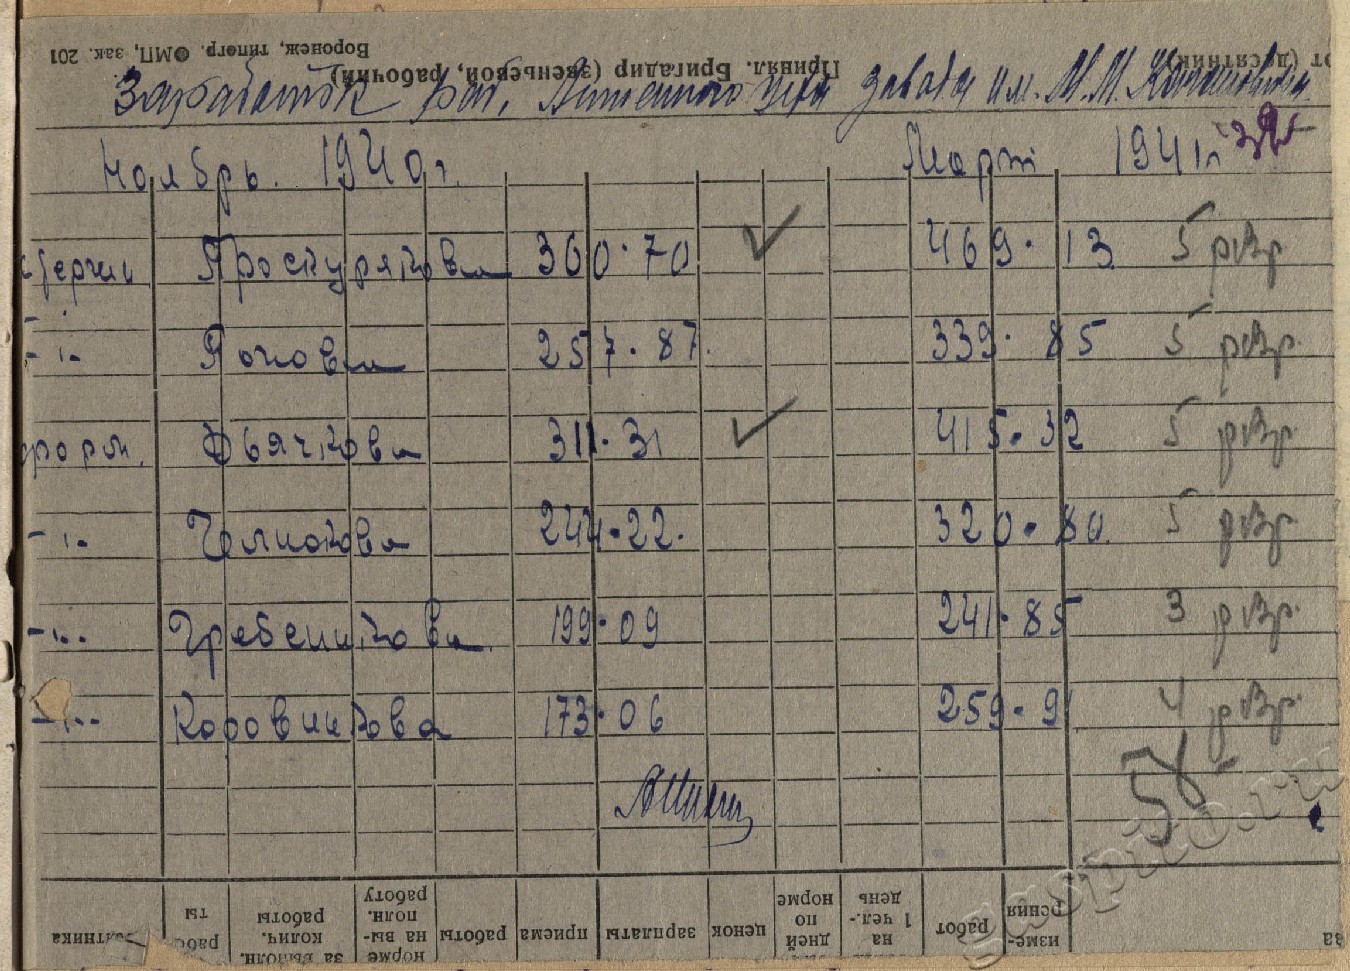 Воронеж, типогр. ОМП, зак. 201
Принял. Бригадир (звеньевой, рабочий)
от (десятник)
Заработок раб. Литейного цеха завода им. М.М. Кагановича
Ноябрь. 1940 г. Март 1941 г.
Проскурякова 360.70 469.13 5 разр
-"- Попова 257.87 339.85 5 разр.
форм. Дьячкова 311.31 415.32 5 разр.
-"- 244.22. 320.80. 5 разр.
-"- Гребеникова 199.09 241.85 3 разр.
-"- Коровникова 173.06 259.91 4 разр.
gaspito.ru
ты
за выполн. колич. работы
норме на вы- полн. работу
работы
приема
зарплаты
ценок
дней по норме
на 1 чел.- день
работ
изме- рения